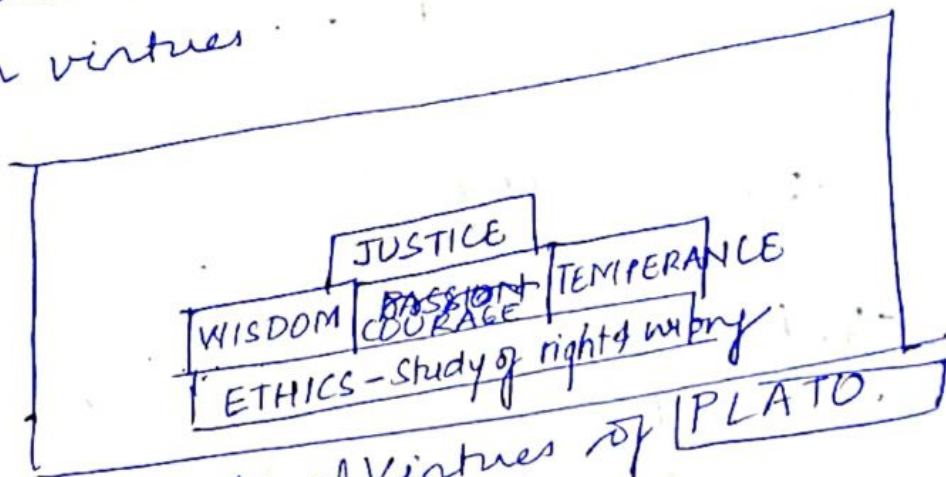 virtues
JUSTICE
WISDOM COURAGE TEMPERANCE
ETHICS - Study of right & wrong
Virtues of PLATO.